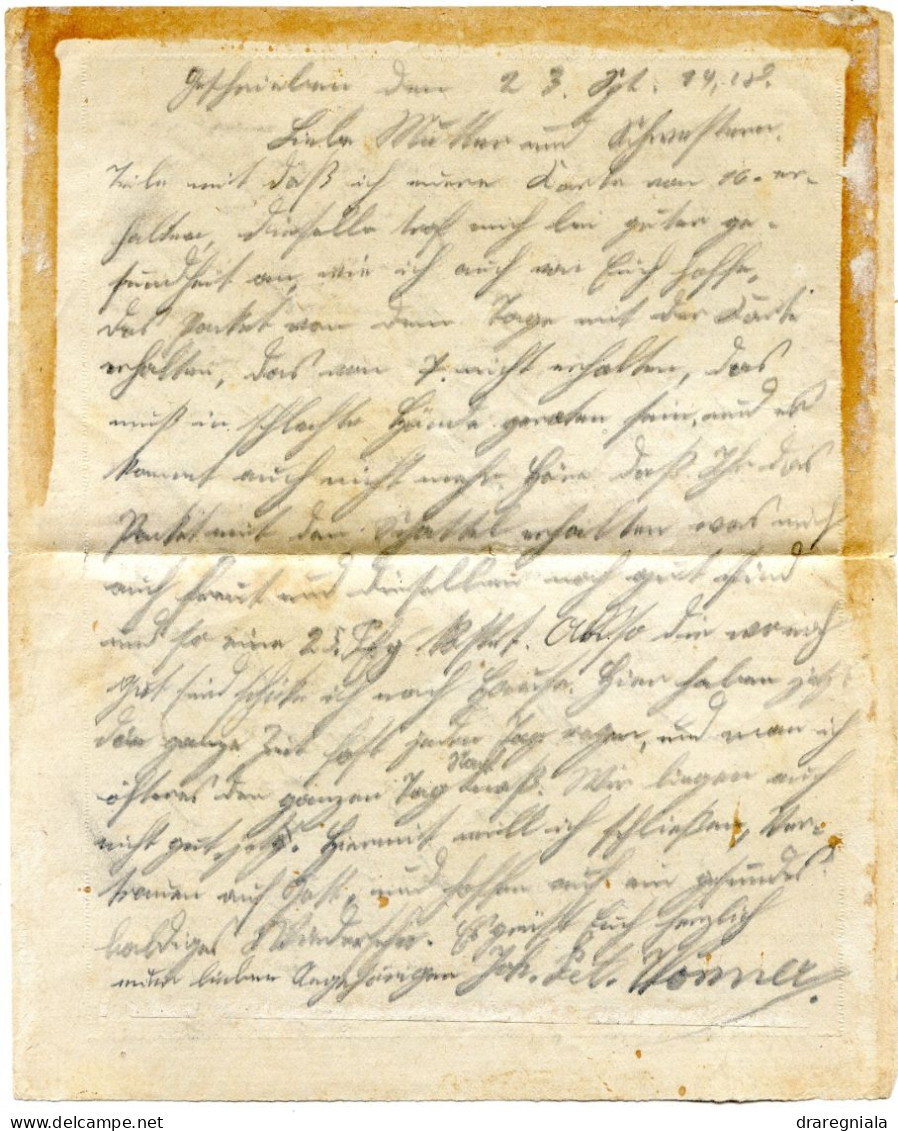 Geschrieben den 23. Spt. 1918.
Liebe Mutter und Schwestern.
Teile mit daß ich eure Karte von 16. er-
halten, dieselbe traf mich bei guter ge-
sundheit an, wie ich auch von Euch hoffe.
Das Packet von dem Tage mit der Karte
erhalten, das von 7. nicht erhalten, das
muß in schlechte Hände geraten sein, und es
kommt auch nicht mehr. Höre daß Ihr das
Packet mit den erhalten was mich
auch freut und dieselben noch gut sind
und so eine 25 Pfg kostet. Also die wo noch
gut sind schicke ich nach Hause. Hier haben jetzt
die ganze Zeit fast jeden Tag regen, und man ich
öfteres den ganzen Tag naß. Wir liegen auch
nicht gut jetzt. Hiermit will ich schließen, Ver-
trauen auf Gott, und hoffen auf ein gesundes
baldiges Wiedersehn. Es grüßt Euch herzlich
meine lieben Angehörigen Joh. Pet.
delcampe.net
draregniala